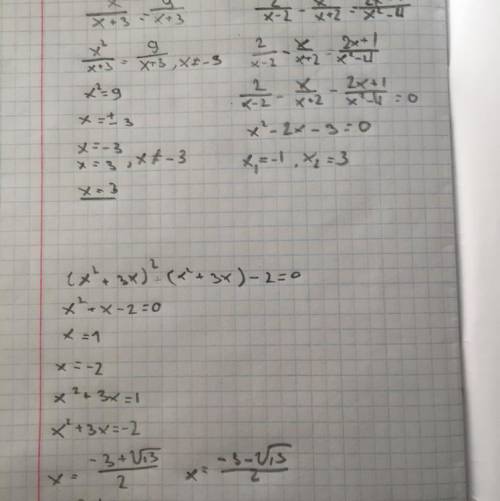 x/x+3 = 9/x+3
x²/x+3 = 9/x+3, x≠-3
x²=9
x=±3
x=-3
x=3, x≠-3
x=3
2/x-2 - x/x+2 = 2x+1/x²-4
2/x-2 - x/x+2 = 2x+1/x²-4
2/x-2 - x/x+2 - 2x+1/x²-4 = 0
x²-2x-3=0
x₁=-1, x₂=3
(x²+3x)² - (x²+3x)-2=0
x²+x-2=0
x=1
x=-2
x²+3x=1
x²+3x=-2
x= -3+√13/2 x= -3-√13/2